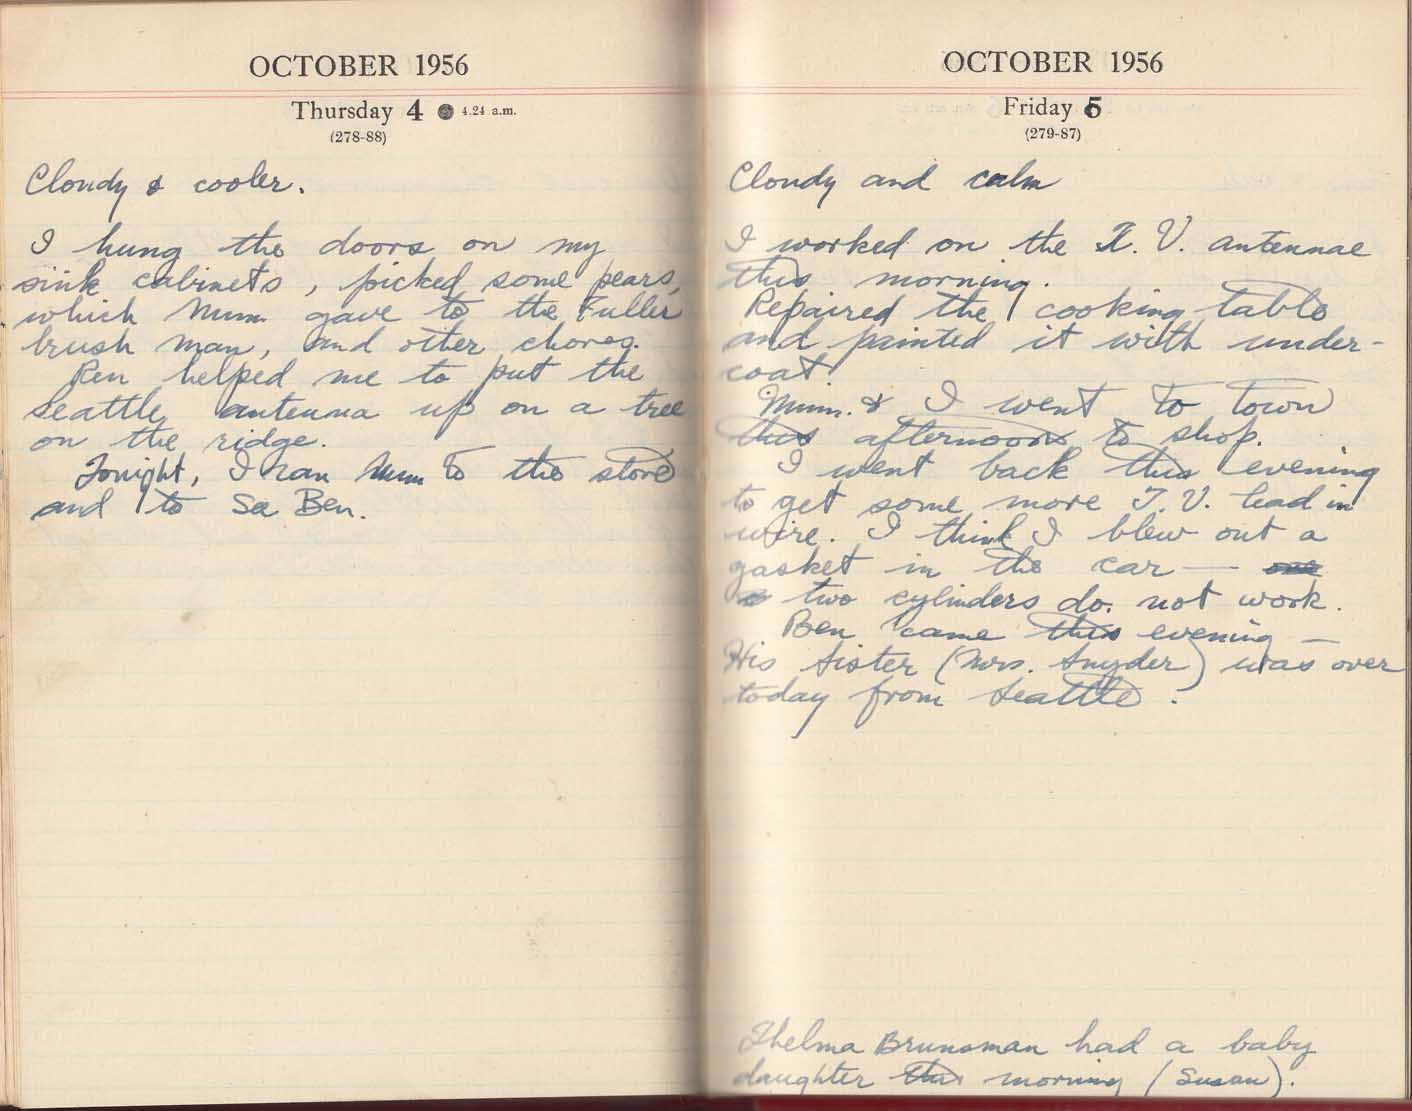 OCTOBER 1956
Thursday 4 4.24 a.m.
(278-88)
Cloudy & cooler.
I hung the doors on my
sink cabinets, picked some pears,
which Mum gave to the Fuller
brush man, and other chores.
Ren helped me to put the
Seattle antenna up on a tree
on the ridge.
Tonight, I ran Mum to the store
and to See Ben.
OCTOBER 1956
Friday 5
(279-87)
Cloudy and calm
I worked on the T.V. antennae
this morning.
Repaired the cooking table
and painted it with under-
coat.
Mum. & I went to town
this afternoon to shop.
I went back this evening
to get some more T.V. lead in
wire. I think I blew out a
gasket in the car — one
two cylinders do. not work.
Ben came this evening —
His sister (Mrs. Snyder) was over
today from Seattle.
Thelma Brunsman had a baby
daughter this morning (Susan).